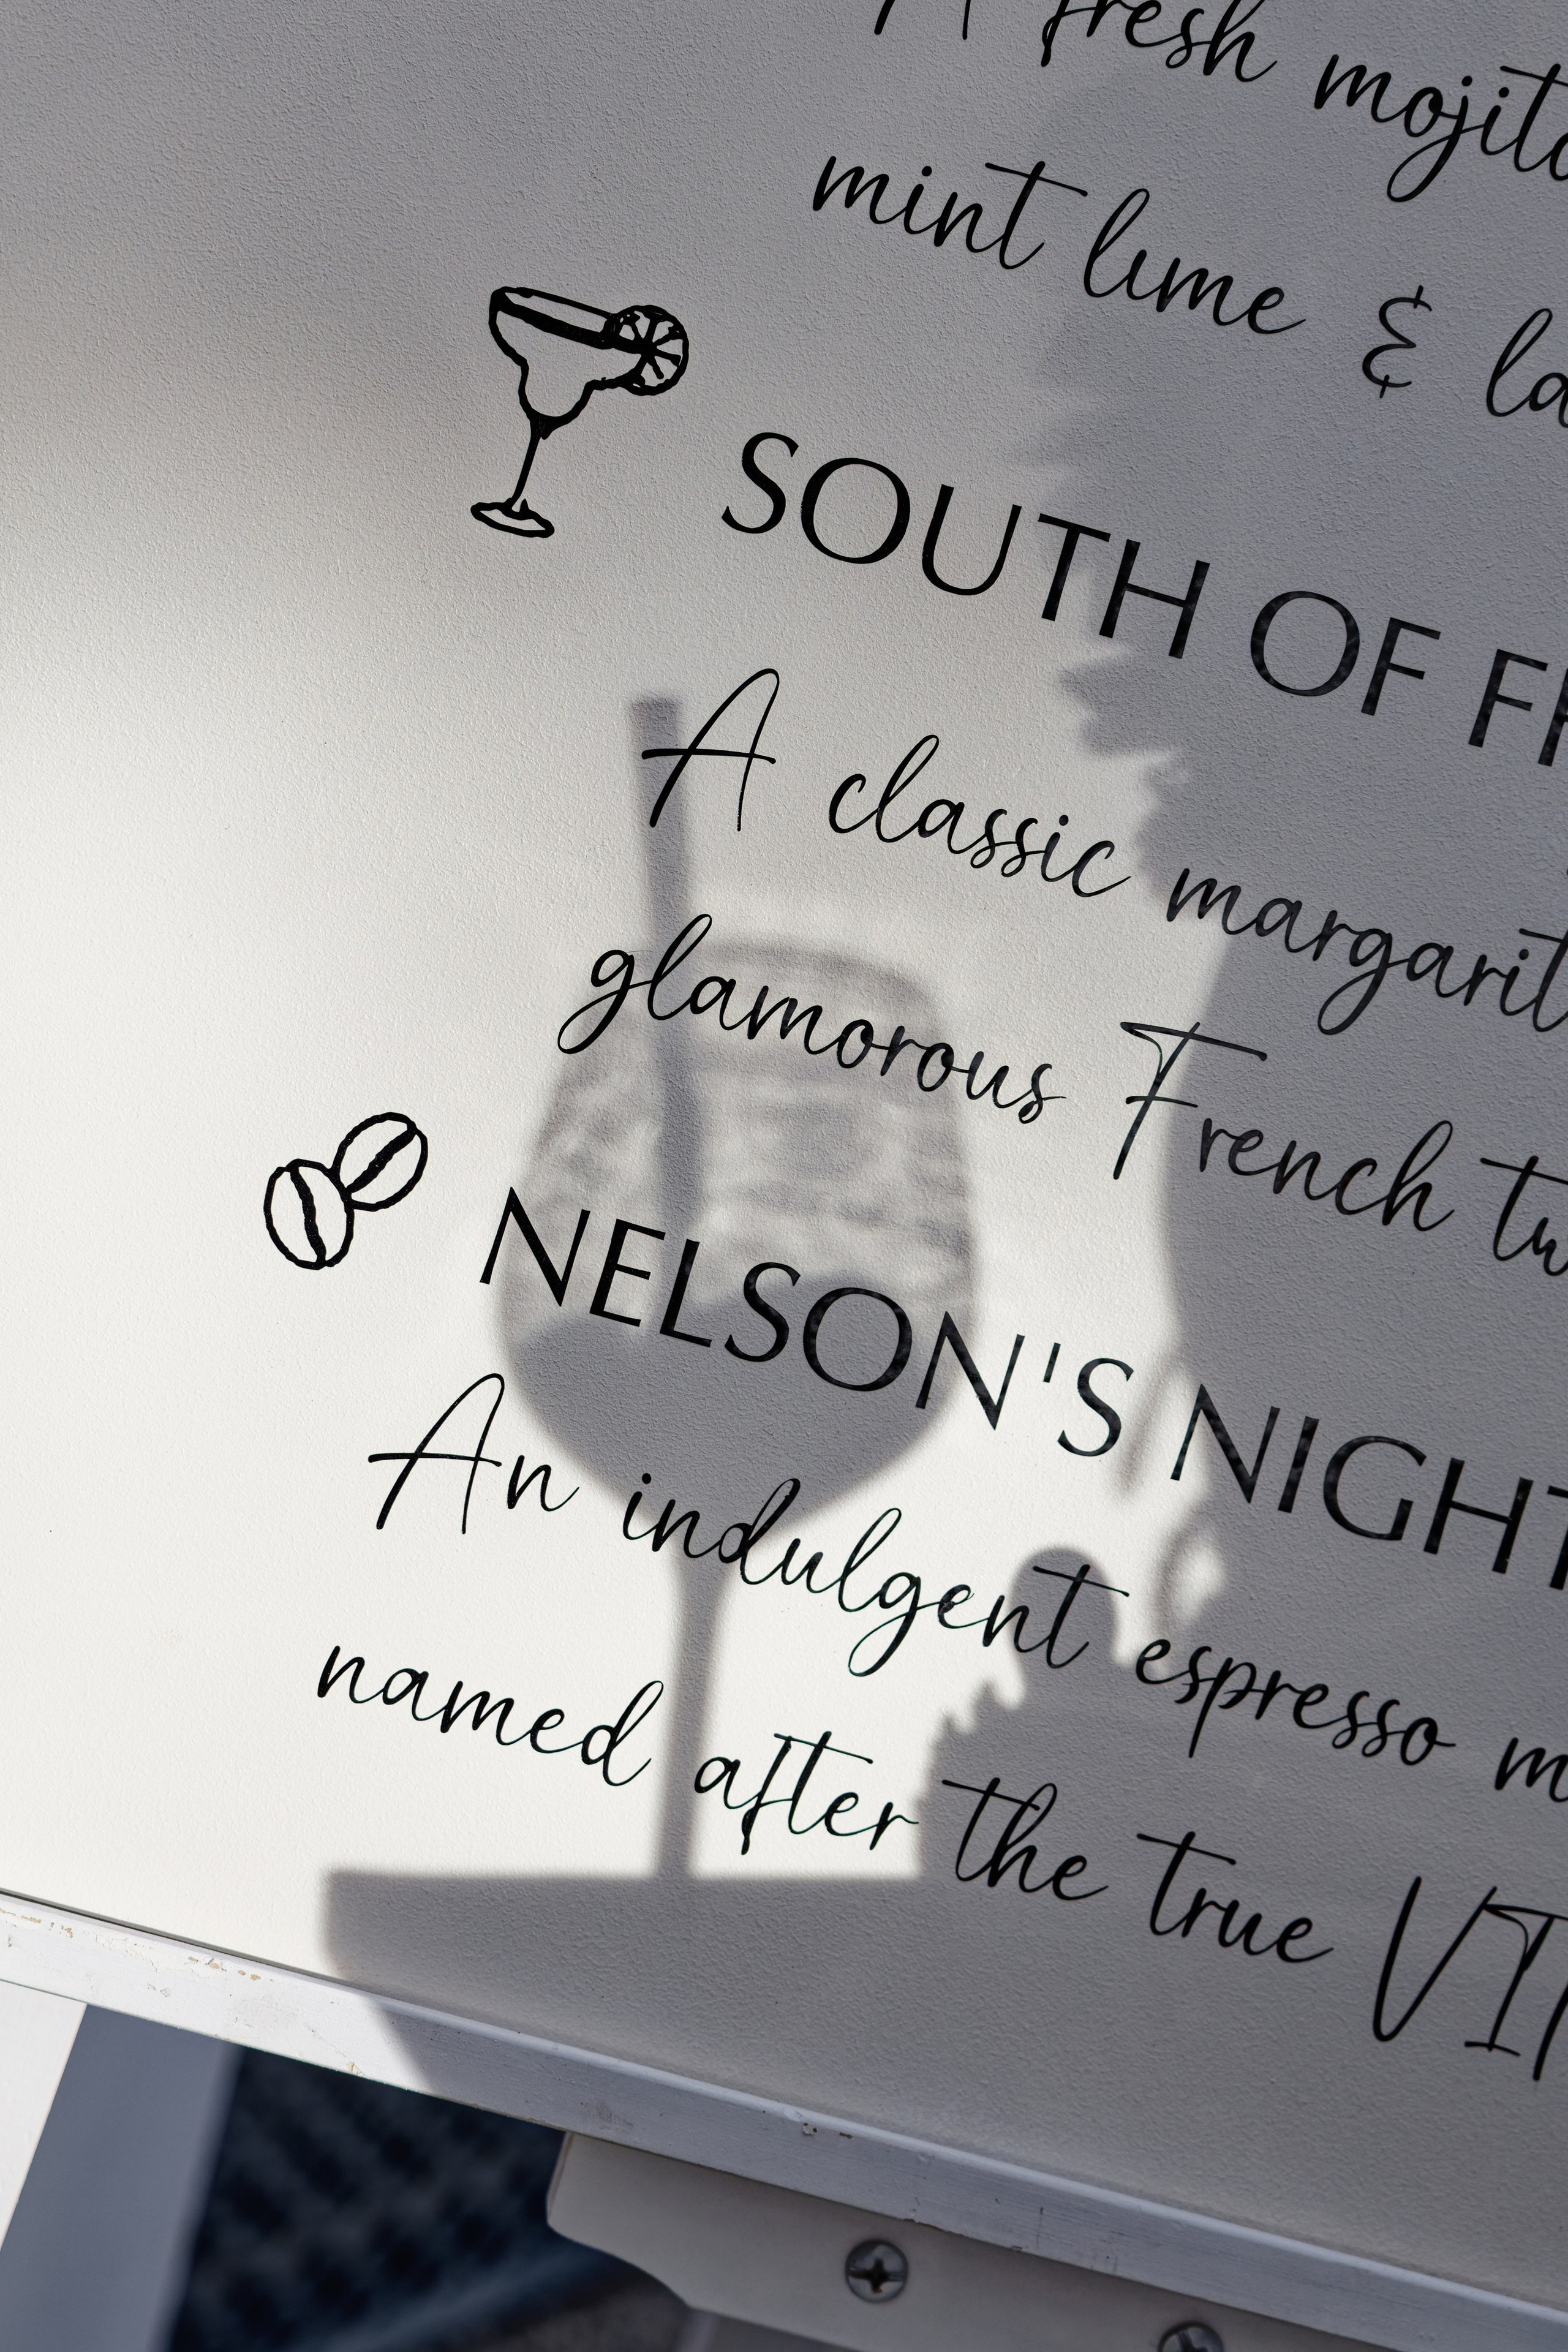 A fresh mojito
mint lime & la
SOUTH OF FR
A classic margarit
glamorous French tw
NELSON'S NIGHT
An indulgent espresso m
named after the true VIP